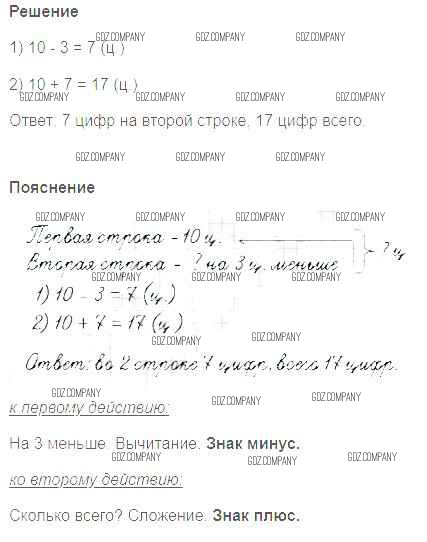 Решение
GDZ.COMPANY GDZ.COMPANY GDZ.COMPANY
1) 10 - 3 = 7 (ц.)
2) 10 + 7 = 17 (ц.)
GDZ.COMPANY GDZ.COMPANY GDZ.COMPANY GDZ.COMPANY
Ответ: 7 цифр на второй строке, 17 цифр всего.
GDZ.COMPANY GDZ.COMPANY GDZ.COMPANY
Пояснение
GDZ.COMPANY GDZ.COMPANY GDZ.COMPANY GDZ.COMPANY
Первая строка - 10 ц.
? ц
Вторая строка - ? на 3 ц. меньше
GDZ.COMPANY GDZ.COMPANY GDZ.COMPANY GDZ.COMPANY
1) 10 - 3 = 7 (ц.)
2) 10 + 7 = 17 (ц.)
GDZ.COMPANY GDZ.COMPANY GDZ.COMPANY
Ответ: во 2 строке 7 цифр, всего 17 цифр.
GDZ.COMPANY GDZ.COMPANY GDZ.COMPANY GDZ.COMPANY
к первому действию:
На 3 меньше. Вычитание. Знак минус.
GDZ.COMPANY GDZ.COMPANY GDZ.COMPANY
ко второму действию:
Сколько всего? Сложение. Знак плюс.